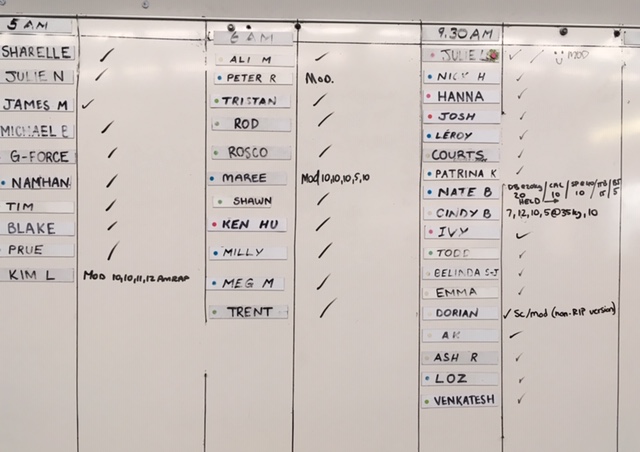 5 AM
SHARELLE ✓
JULIE N ✓
JAMES M ✓
MICHAEL
G-FORCE ✓
NAMHAN ✓
TIM ✓
BLAKE ✓
PRUE ✓
KIM L MOD 10,10,11,12 AMRAP
6 AM
ALI M ✓
PETER R MOD.
TRISTAN ✓
ROD ✓
ROSCO ✓
MAREE Mod 10,10,10,5,10
SHAWN ✓
KEN HU ✓
MILLY ✓
MEG M ✓
TRENT ✓
9.30AM
JULIE ✓ ✓ MOD
NICK H ✓
HANNA ✓
JOSH ✓
LEROY ✓
COURTS ✓
PATRINA K ✓
NATE B
CINDY B 7,12,10,5@35kg,10
IVY ✓
TODD ✓
BELINDA S-J ✓
EMMA ✓
DORIAN ✓ Sc/mod (non-RIP version)
AK ✓
ASH R ✓
LOZ ✓
VENKATESH ✓